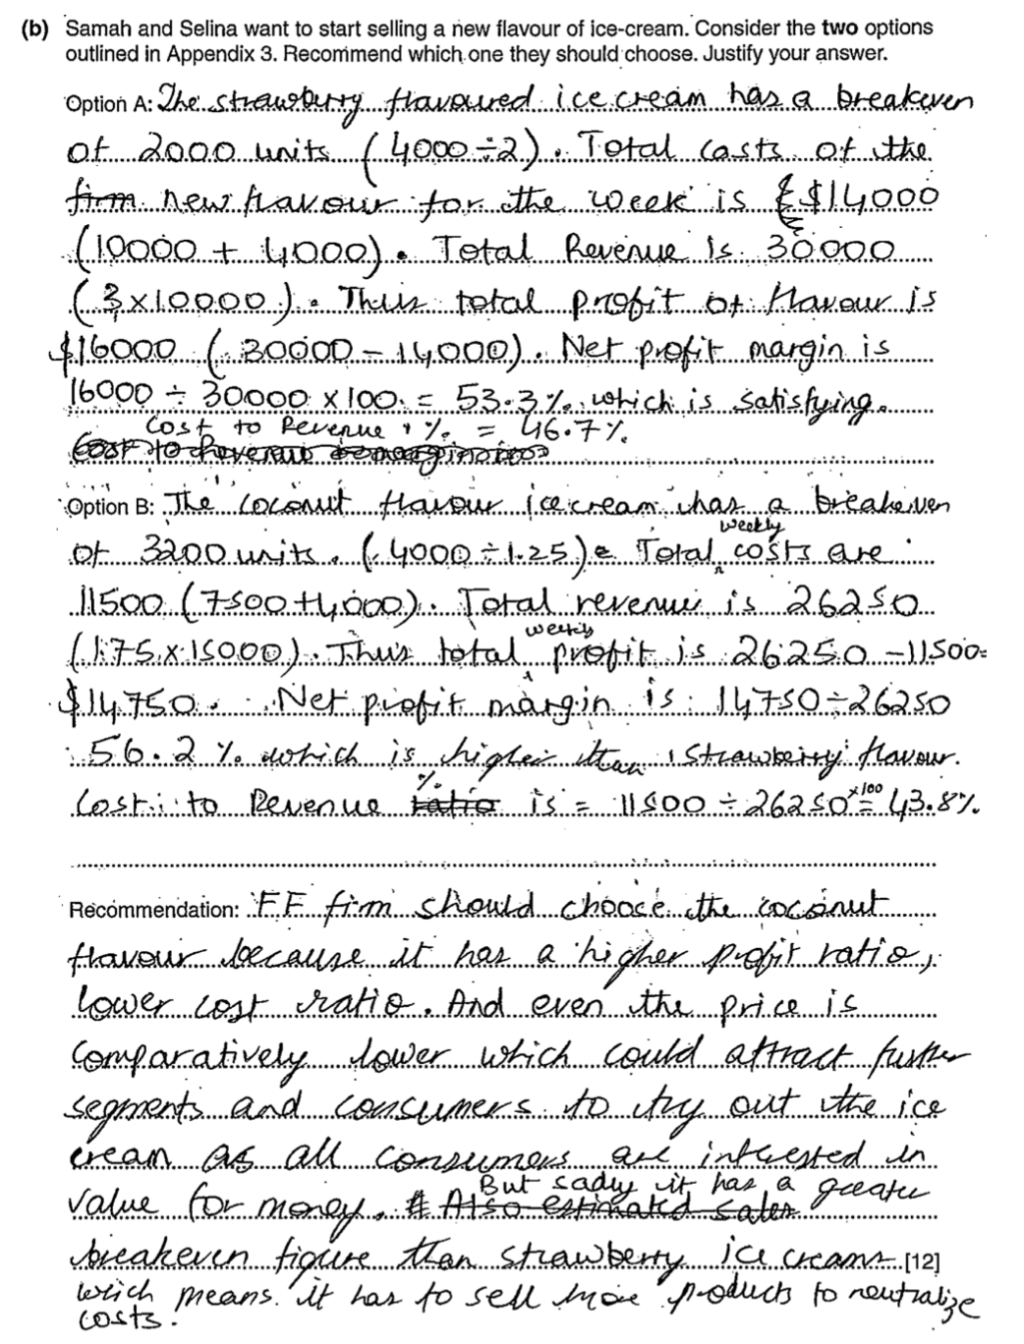 (b) Samah and Selina want to start selling a new flavour of ice-cream. Consider the two options
outlined in Appendix 3. Recommend which one they should choose. Justify your answer.
Option A: The strawberry flavoured ice cream has a breakeven
of 2000 units (4000 ÷ 2). Total costs of the
firm new flavour for the week is $14000
(10000 + 4000). Total Revenue is 30000
(3 x 10000). Thus total profit of flavour is
$16000 (30000 - 14000). Net profit margin is
16000 ÷ 30000 x 100 = 53.3%, which is satisfying.
Cost to Revenue % = 46.7%
Cost to Revenue
Option B: The coconut flavour ice cream has a breakeven
of 3200 units. (4000 ÷ 1.25) Total weekly costs are
11500 (7500 + 4000). Total revenue is 26250
(1.75 x 15000). Thus total weekly profit is 26250 - 11500=
$14,750. Net profit margin is 14750 ÷ 26250
56.2% which is higher than strawberry flavour.
Cost to Revenue ratio % is = 11500 ÷ 26250 x100 = 43.8%
Recommendation: FF firm should choose the coconut
flavour because it has a higher profit ratio,
lower cost ratio. And even the price is
comparatively lower which could attract further
segments and consumers to try out the ice
cream as all consumers are interested in
value for money. Also estimated sales But sadly it has a greater
breakeven figure than strawberry ice creams [12]
which means it has to sell more products to neutralize
costs.